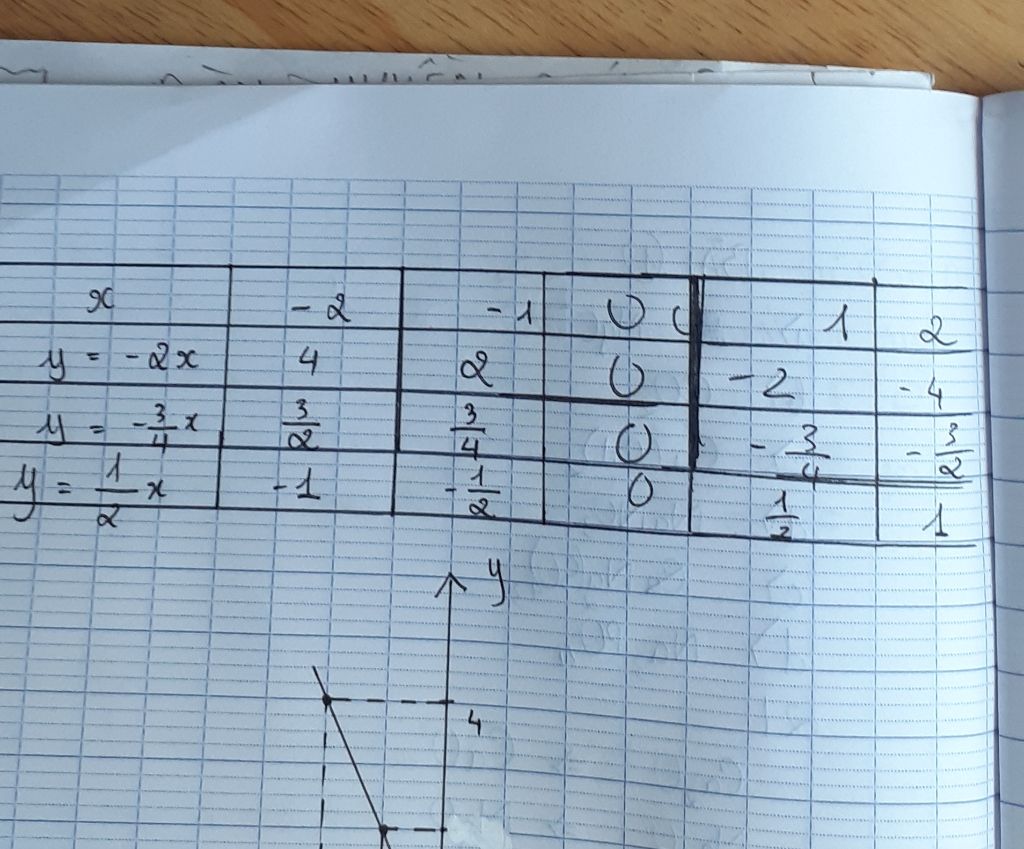 x -2 -1 0 1 2
y = -2x 4 2 0 -2 -4
y = -3/4 x 3/2 3/4 0 -3/4 -3/2
y = 1/2 x -1 -1/2 0 1/2 1
y
4